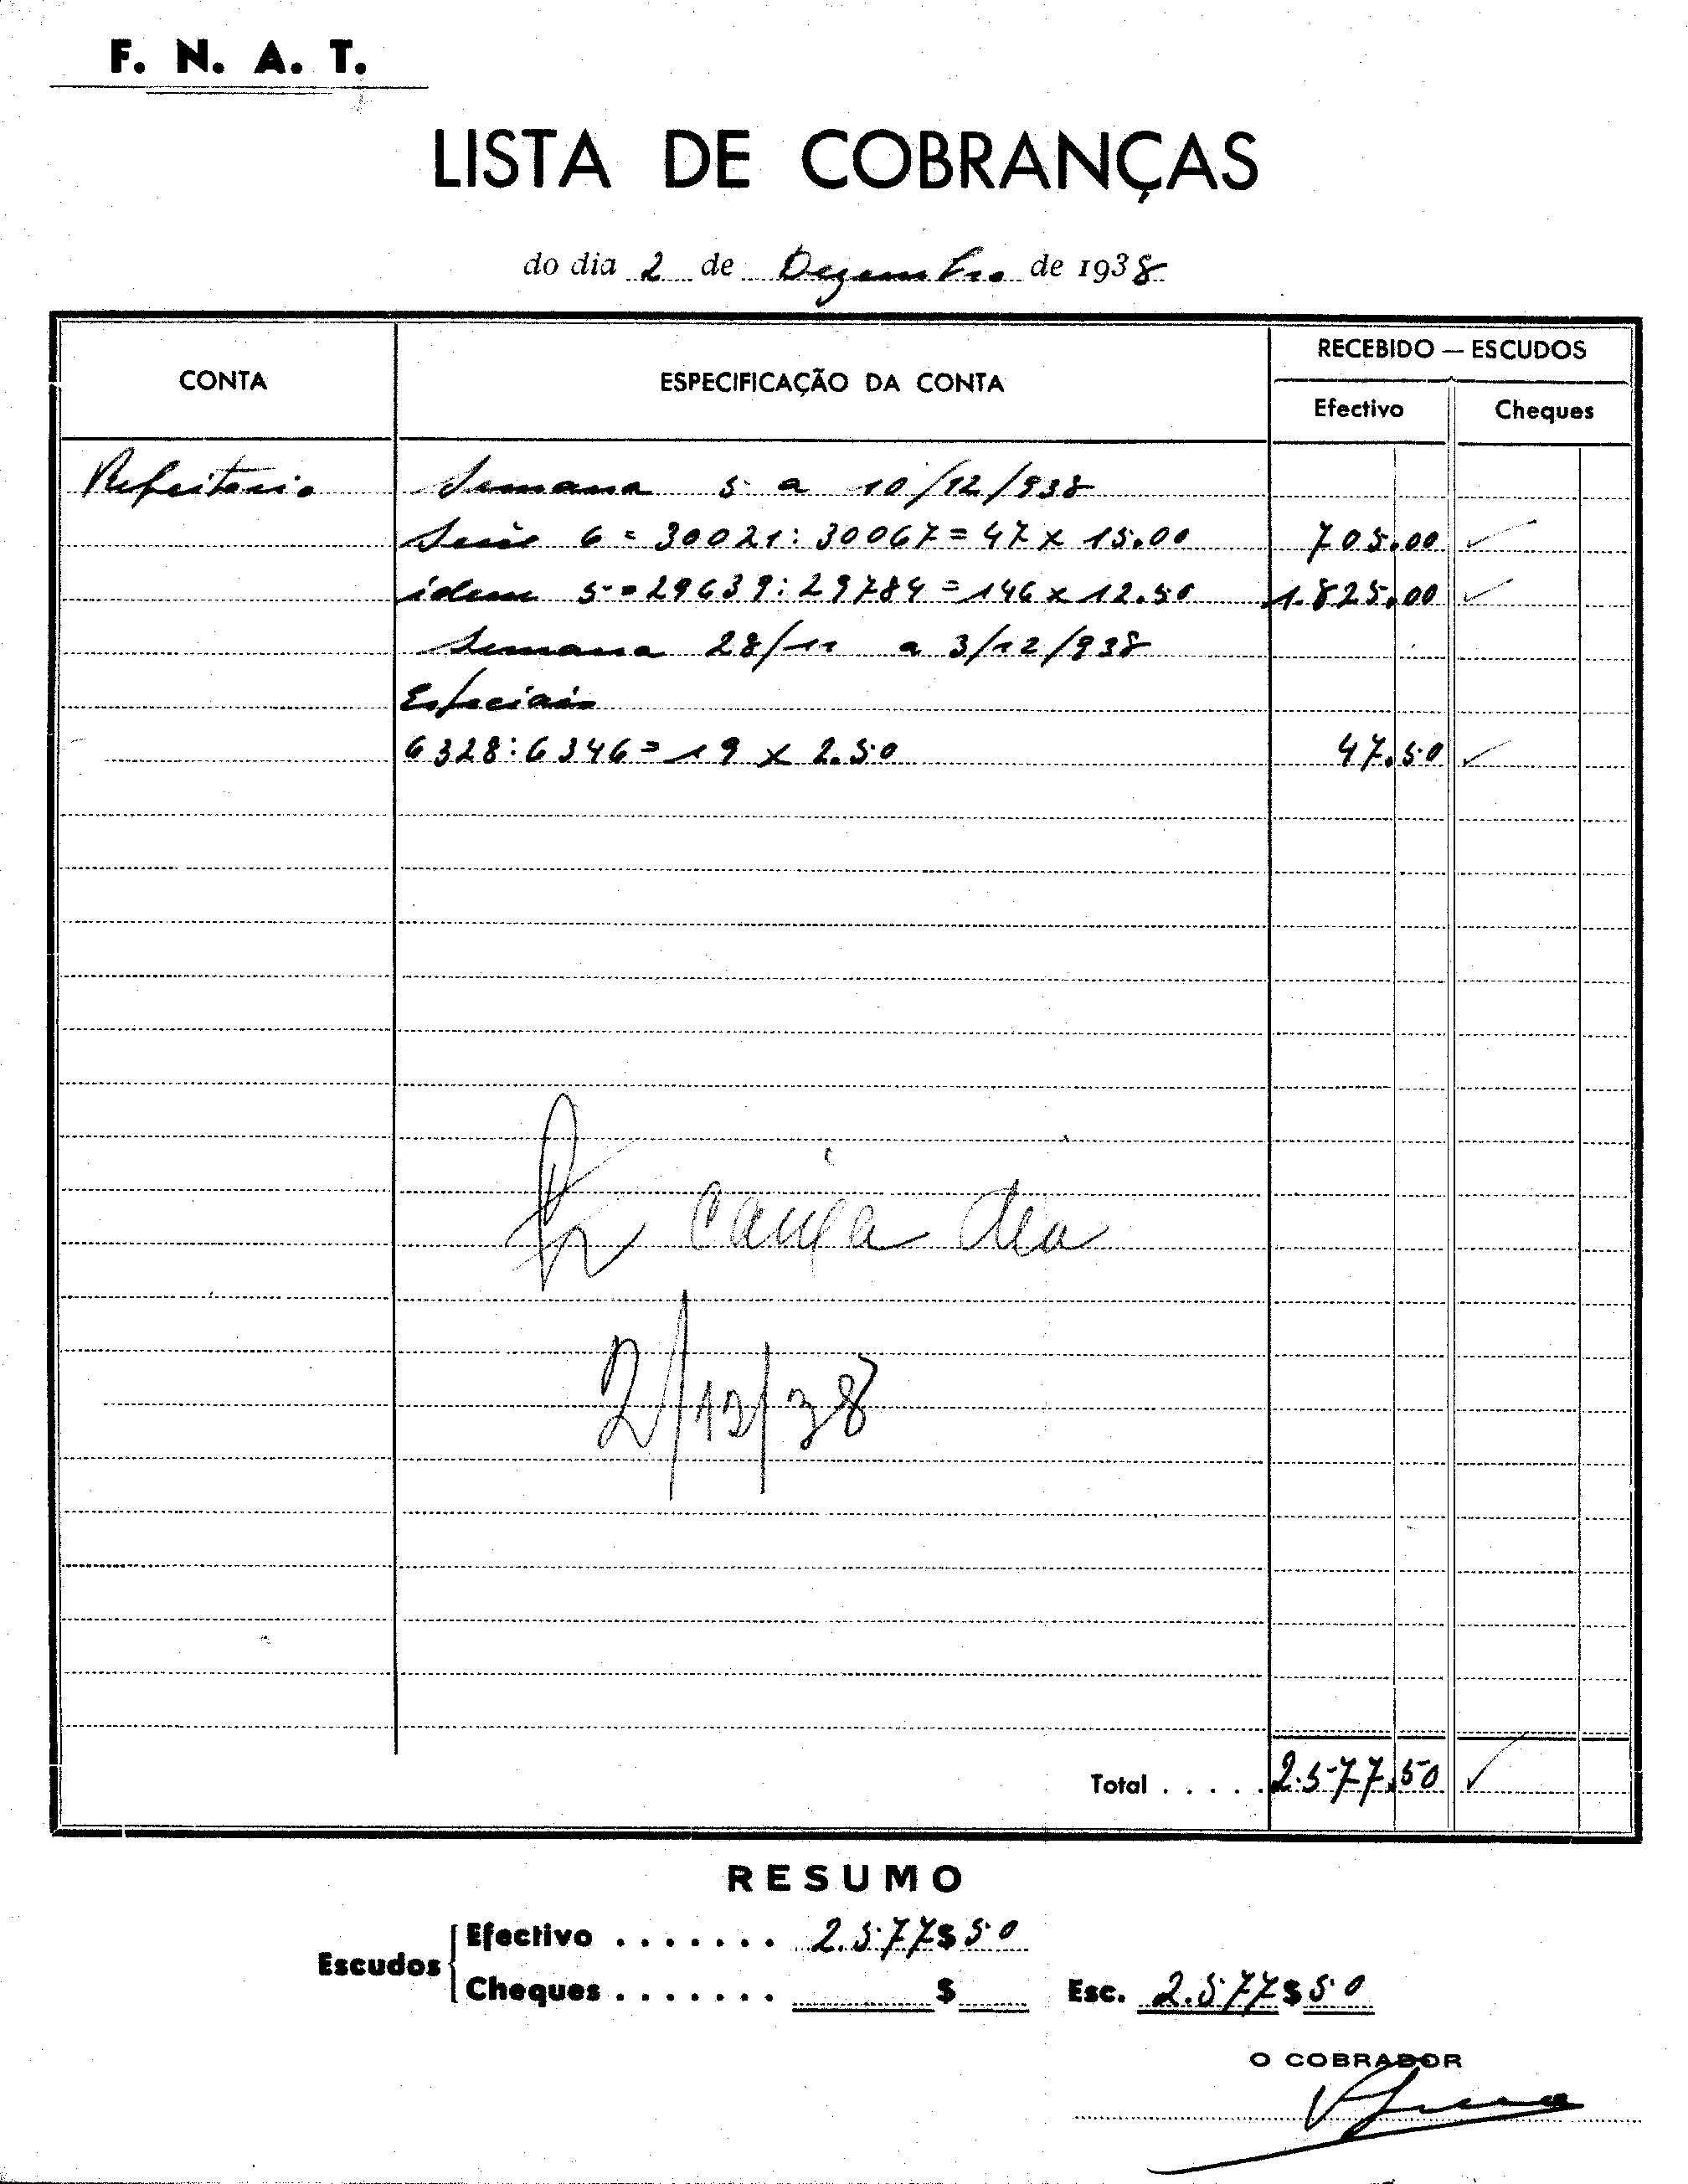 F. N. A. T.
LISTA DE COBRANÇAS
do dia 2 de Dezembro de 1938
CONTA
ESPECIFICAÇÃO DA CONTA
RECEBIDO — ESCUDOS
Efectivo
Cheques
Refeitorio Semana 5 a 10/12/938
Serie 6 = 30021:30067 = 47 x 15.00 705.00
idem 5 = 29639:29784 = 146 x 12.50 1.825.00
Semana 28/11 a 3/12/938
Especiais
6328:6346 = 19 x 2.50 47.50
caixa dia
2/12/38
Total . . . . . 2.577.50
RESUMO
Escudos
Efectivo . . . . . . . 2.577$50
Cheques . . . . . . . $
Esc. 2.577$50
O COBRADOR